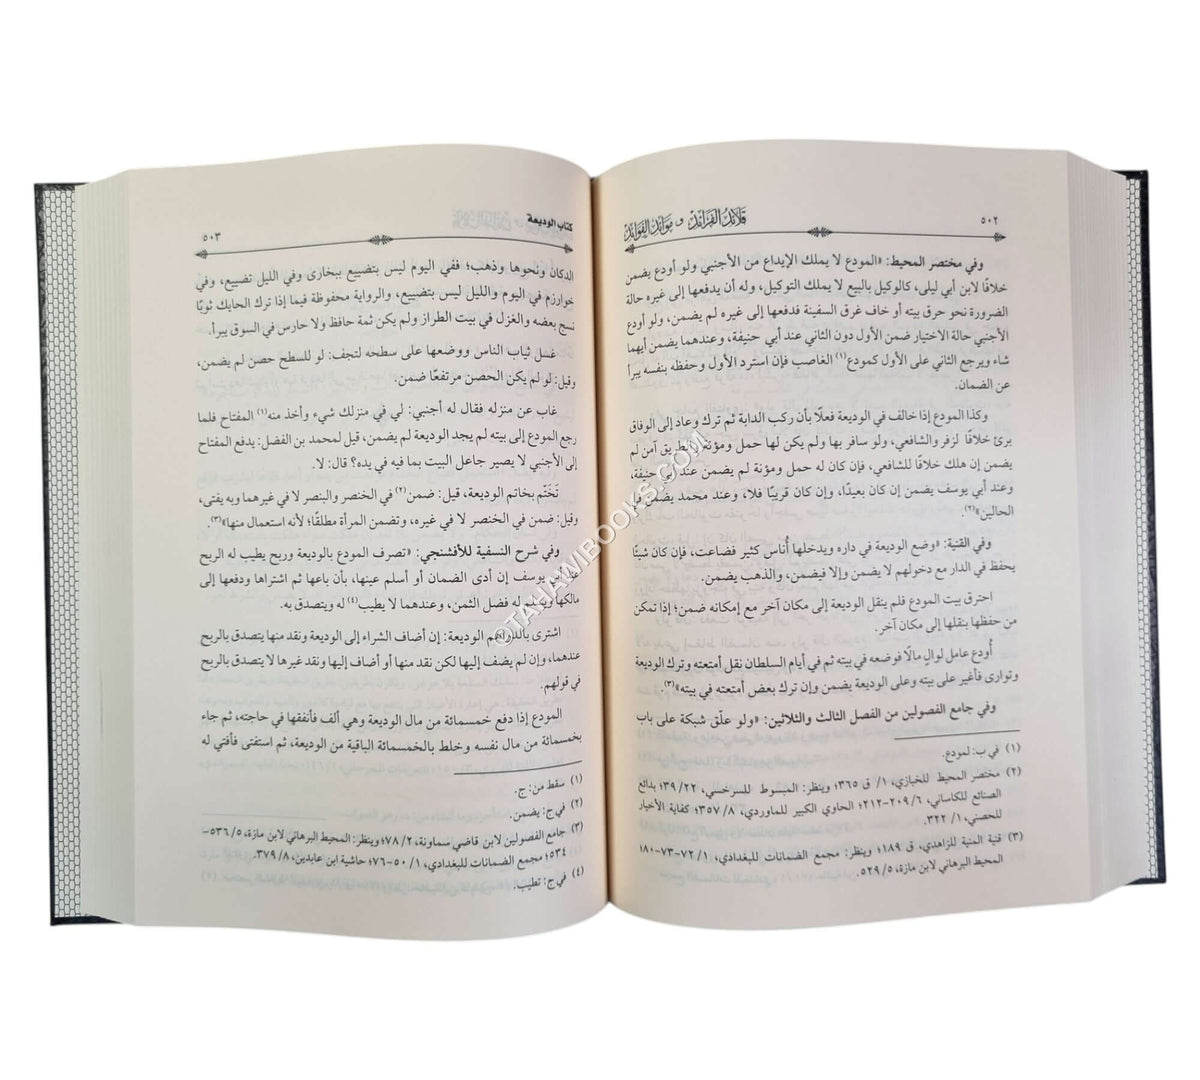 ٥٠٢
قلائد الفرائد و موائد الفوائد
وفي مختصر المحيط: «المودع لا يملك الإيداع من الأجنبي ولو أودع يضمن
خلافًا لابن أبي ليلى، كالوكيل بالبيع لا يملك التوكيل، وله أن يدفعها إلى غيره حالة
الضرورة نحو حرق بيته أو خاف غرق السفينة فدفعها إلى غيره لم يضمن، ولو أودع
الأجنبي حالة الاختيار ضمن الأول دون الثاني عند أبي حنيفة، وعندهما يضمن أيهما
شاء ويرجع الثاني على الأول كمودع(١) الغاصب فإن استرد الأول وحفظه بنفسه يبرأ
عن الضمان.
وكذا المودع إذا خالف في الوديعة فعلًا بأن ركب الدابة ثم ترك وعاد إلى الوفاق
برئ خلافًا لزفر والشافعي، ولو سافر بها ولم يكن لها حمل ومؤنة والطريق آمن لم
يضمن إن هلك خلافًا للشافعي، فإن كان له حمل ومؤنة لم يضمن عند أبي حنيفة،
وعند أبي يوسف يضمن إن كان بعيدًا، وإن كان قريبًا فلا، وعند محمد يضمن في
الحالين»(٢).
وفي القنية: «وضع الوديعة في داره ويدخلها أُناس كثير فضاعت، فإن كان شيئًا
يحفظ في الدار مع دخولهم لا يضمن وإلا فيضمن، والذهب يضمن.
احترق بيت المودع فلم ينقل الوديعة إلى مكان آخر مع إمكانه ضمن؛ إذا تمكن
من حفظها بنقلها إلى مكان آخر.
أُودع عامل لوالٍ مالًا فوضعه في بيته ثم في أيام السلطان نقل أمتعته وترك الوديعة
وتوارى فأغير على بيته وعلى الوديعة يضمن وإن ترك بعض أمتعته في بيته»(٣).
وفي جامع الفصولين من الفصل الثالث والثلاثين: «ولو علّق شبكة على باب
(١) في ب: لمودع.
(٢) مختصر المحيط للخبازي، ١/ ق ٣٦٥؛ وينظر: المبسوط للسرخسي، ٢٢/ ٣٩؛ بدائع
الصنائع للكاساني، ٦/ ٢٠٩-٢١٢؛ الحاوي الكبير للماوردي، ٨/ ٣٥٧؛ كفاية الأخيار
للحصني، ١/ ٣٢٢.
(٣) قنية المنية للزاهدي، ق ١٨٩؛ وينظر: مجمع الضمانات للبغدادي، ١/ ٧٢-٧٣-٨٠؛
المحيط البرهاني لابن مازة، ٥/ ٥٢٩.
كتاب الوديعة
٥٠٣
الدكان ونحوها وذهب؛ ففي اليوم ليس بتضييع ببخارى وفي الليل تضييع، وفي
خوارزم في اليوم والليل ليس بتضييع، والرواية محفوظة فيما إذا ترك الحايك ثوبًا
نسج بعضه والغزل في بيت الطراز ولم يكن ثمة حافظ ولا حارس في السوق يبرأ.
غسل ثياب الناس ووضعها على سطحه لتجف: لو للسطح حصن لم يضمن،
وقيل: لو لم يكن الحصن مرتفعًا ضمن.
غاب عن منزله فقال له أجنبي: لي في منزلك شيء وأخذ منه(١) المفتاح فلما
رجع المودع إلى بيته لم يجد الوديعة لم يضمن، قيل لمحمد بن الفضل: يدفع المفتاح
إلى الأجنبي لا يصير جاعل البيت بما فيه في يده؟ قال: لا.
تَخَتّم بخاتم الوديعة، قيل: ضمن(٢) في الخنصر والبنصر لا في غيرهما وبه يفتى،
وقيل: ضمن في الخنصر لا في غيره، وتضمن المرأة مطلقًا؛ لأنه استعمال منها»(٣).
وفي شرح النسفية للأفشنجي: «تصرف المودع بالوديعة وربح يطيب له الربح
يوسف إن أدى الضمان أو أسلم عينها، بأن باعها ثم اشتراها ودفعها إلى
مالكها ويسلم له فضل الثمن، وعندهما لا يطيب(٤) له ويتصدق به.
اشترى بالدراهم الوديعة: إن أضاف الشراء إلى الوديعة ونقد منها يتصدق بالربح
عندهما، وإن لم يضف إليها لكن نقد منها أو أضاف إليها ونقد غيرها لا يتصدق بالربح
في قولهم.
المودع إذا دفع خمسمائة من مال الوديعة وهي ألف فأنفقها في حاجته، ثم جاء
بخمسمائة من مال نفسه وخلط بالخمسمائة الباقية من الوديعة، ثم استفتى فأفتي له
(١) سقط من: ج.
(٢) في ج: يضمن.
(٣) جامع الفصولين لابن قاضي سماونة، ٢/ ٧٨؛ وينظر: المحيط البرهاني لابن مازة، ٥/ ٥٣٦-
٥٣٤؛ مجمع الضمانات للبغدادي، ١/ ٥٠-٧٦؛ حاشية ابن عابدين، ٨/ ٣٧٩.
(٤) في ج: تطيب.
©TAHAWIBOOKS.COM